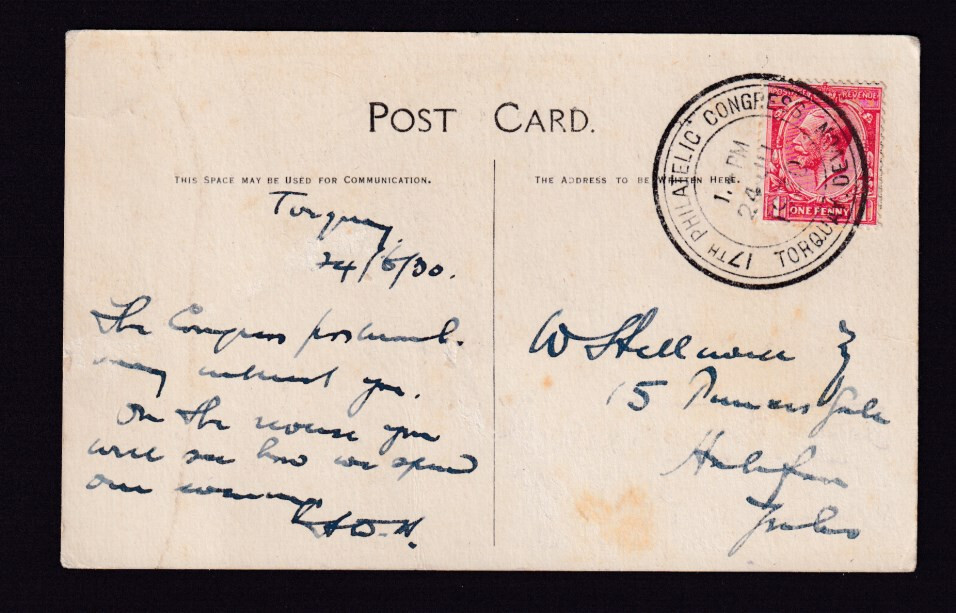 POST CARD.
THIS SPACE MAY BE USED FOR COMMUNICATION.
THE ADDRESS TO BE WRITTEN HERE.
17TH PHILATELIC CONGRESS
TORQUAY, DEVON
PM
24 JU
POSTAGE REVENUE
ONE PENNY
Torquay.
24/6/30.
The Congress postmark.
may interest you.
On the reverse you
will see how we spend
our evenings
W Stellwell
15
Halifax
Yorks